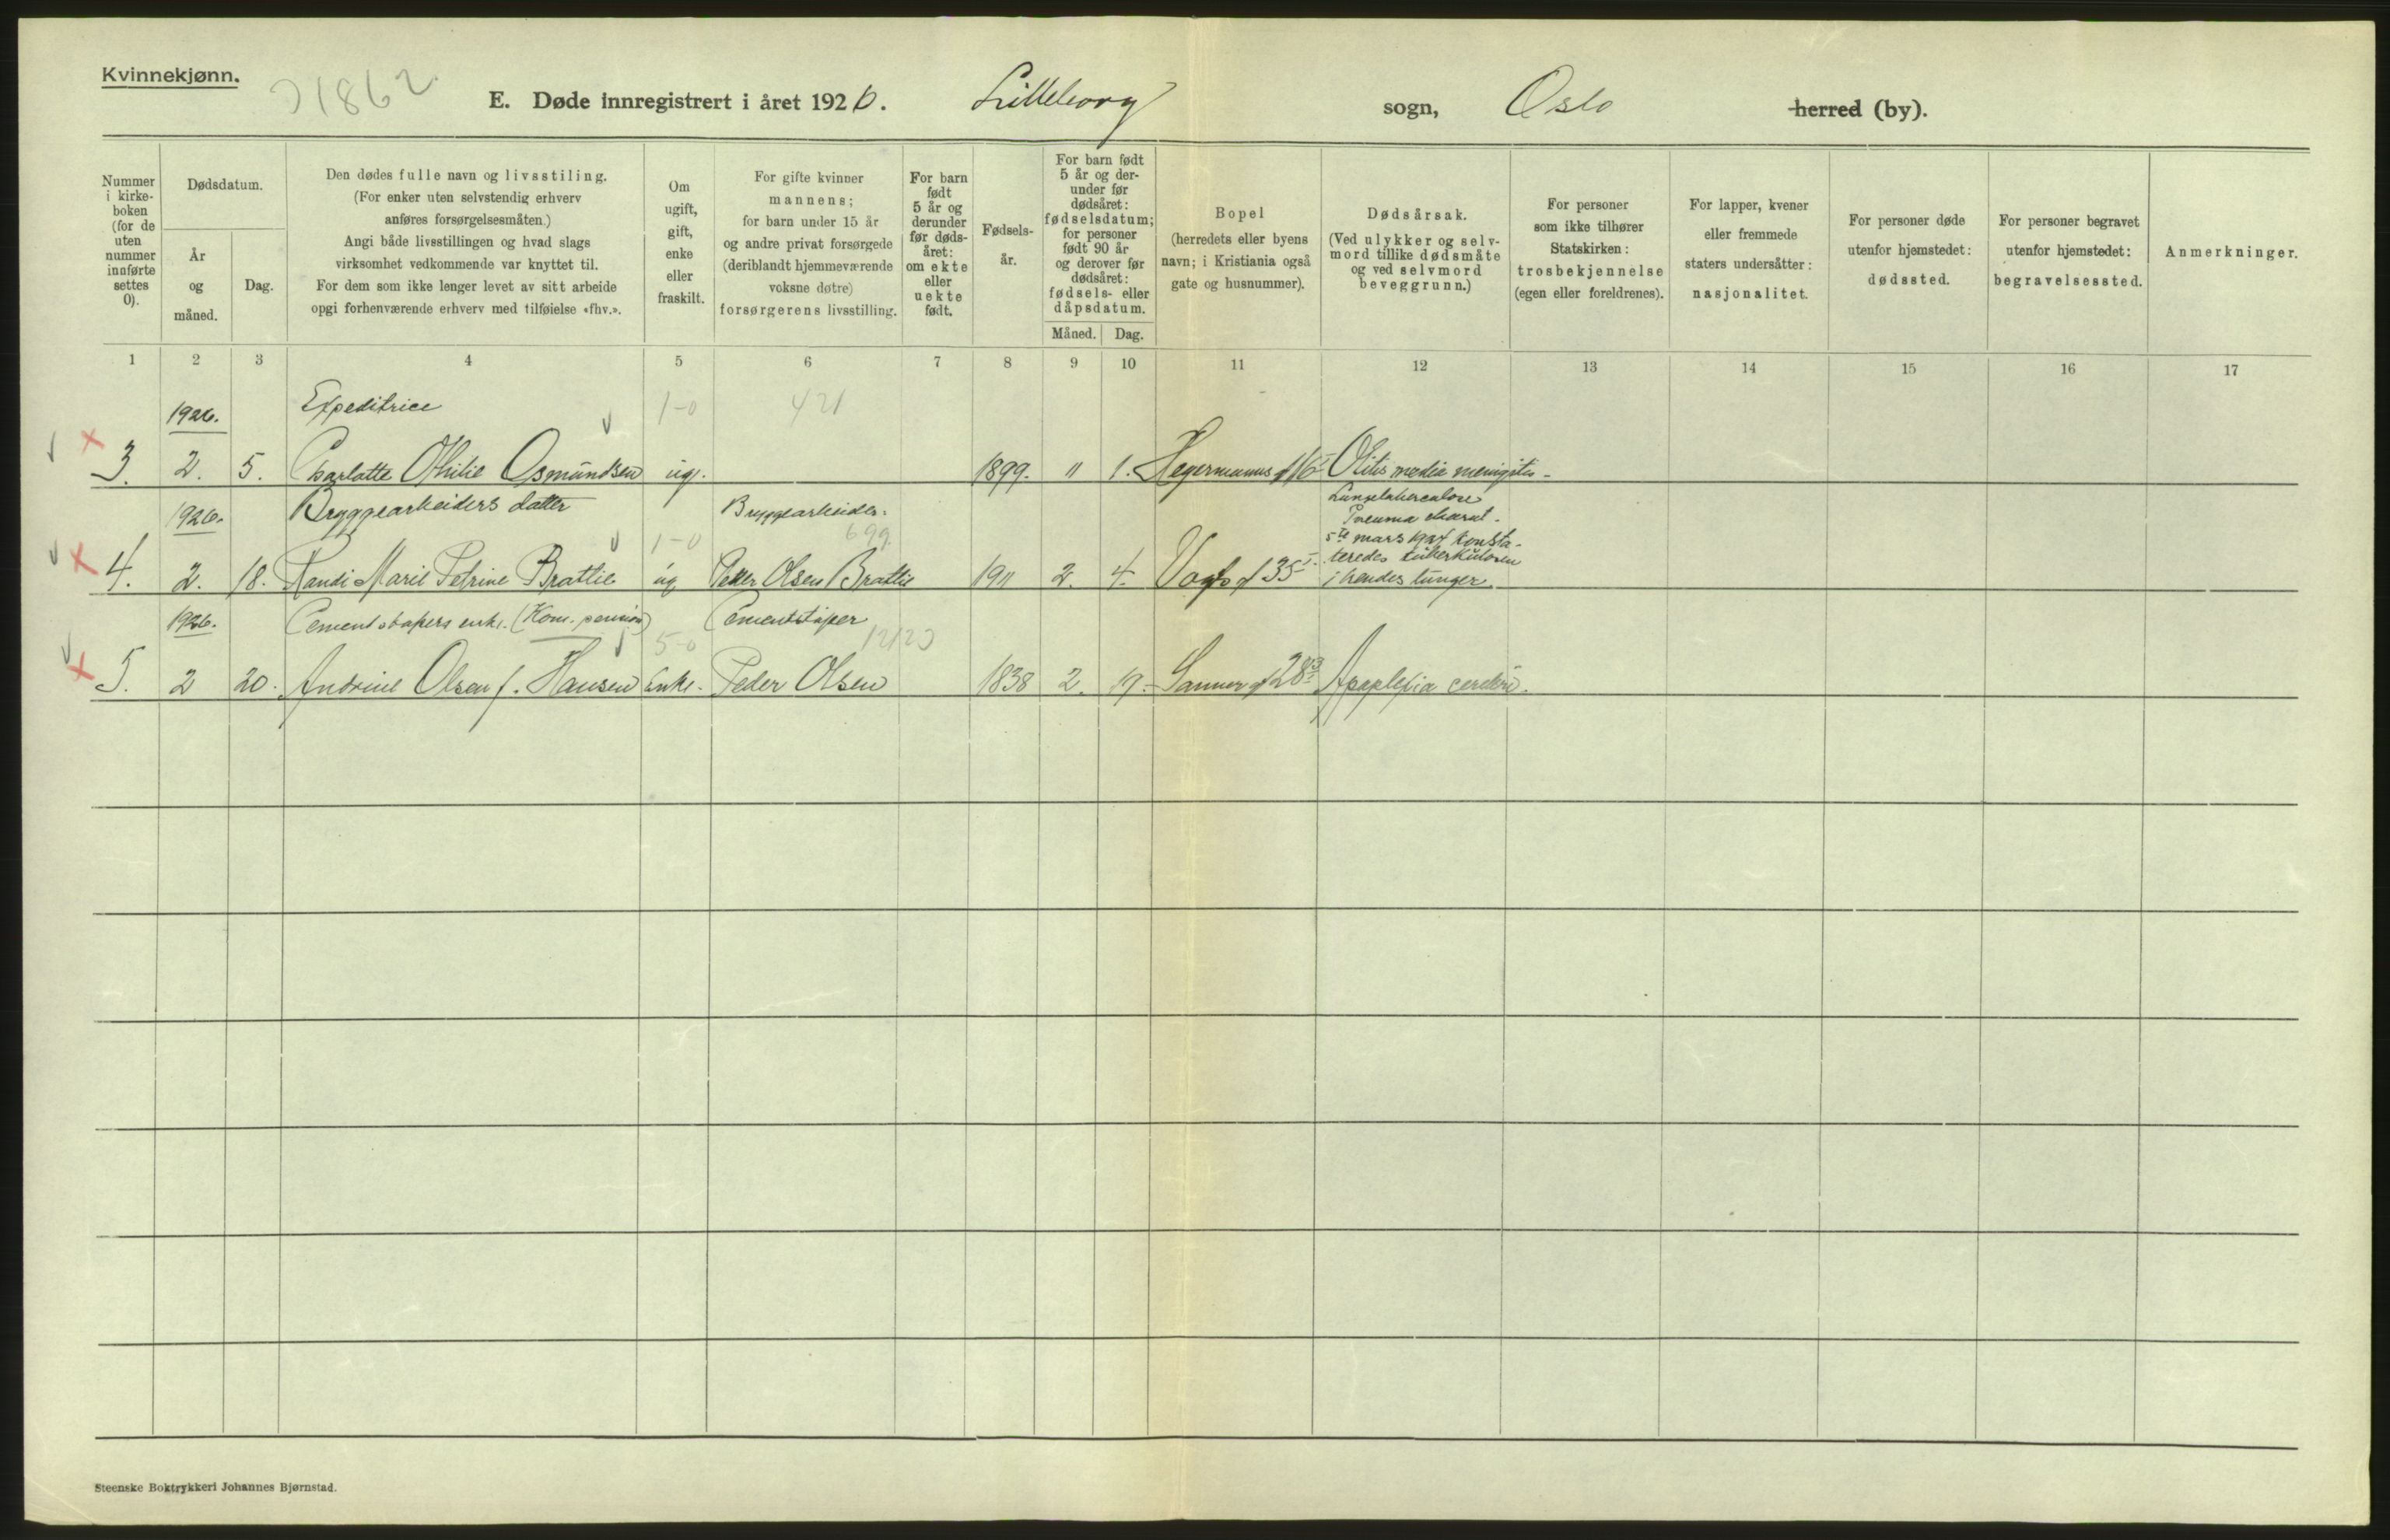 Kvinnekjønn.
E. Døde innregistrert i året 1926. Lilleborg sogn, Oslo herred (by).
Nummer i kirkeboken (for de uten nummer innførte settes 0).
Dødsdatum.
År og måned.
Dag.
Den dødes fulle navn og livsstiling.
(For enker uten selvstendig erhverv
anføres forsørgelsesmåten.)
Angi både livsstillingen og hvad slags
virksomhet vedkommende var knyttet til.
For dem som ikke lenger levet av sitt arbeide
opgi forhenværende erhverv med tilføielse «fhv.».
Om ugift, gift, enke eller fraskilt.
For gifte kvinner
mannens;
for barn under 15 år
og andre privat forsørgede
(deriblandt hjemmeværende
voksne døtre)
forsørgerens livsstilling.
For barn født 5 år og derunder før dødsåret: om ekte eller uekte født.
Fødselsår.
For barn født 5 år og derunder før dødsåret: fødselsdatum; for personer født 90 år og derover før dødsåret: fødsels- eller dåpsdatum.
Måned. Dag.
Bopel
(herredets eller byens
navn; i Kristiania også
gate og husnummer).
Dødsårsak.
(Ved ulykker og selvmord tillike dødsmåte
og ved selvmord
beveggrunn.)
For personer
som ikke tilhører
Statskirken:
trosbekjennelse
(egen eller foreldrenes).
For lapper, kvener
eller fremmede
staters undersåtter:
nasjonalitet.
For personer døde
utenfor hjemstedet:
dødssted.
For personer begravet
utenfor hjemstedet:
begravelsessted.
Anmerkninger.
1 2 3 4 5 6 7 8 9 10 11 12 13 14 15 16 17
1926. Expeditrice 1-0 421
3. 2. 5. Charlotte Othilie Osmundsen ug. 1899. 11 1. Hegermanns g 16 Otitis media menigitis
1926. Bryggearbeiders datter Bryggearbeider. Lungetuberculose
Pneuma
699 1-0 5te mars 1924 konsta-
4. 2. 18. Randi Marie Petrine Brattlie ug Peder Olsen Brattlie 1911 2. 4. Vogts g 35 teredes tuberkulosen
i hendes lunger.
1926. Cementstøpers enke. (Kom. pension) Cementstøper
5-0
5. 2 20. Andrine Olsen f. Hansen Enke. Peder Olsen 1838 2. 19. Sanner g 28 Apoplexia cerebri.
Steenske Boktrykkeri Johannes Bjørnstad.